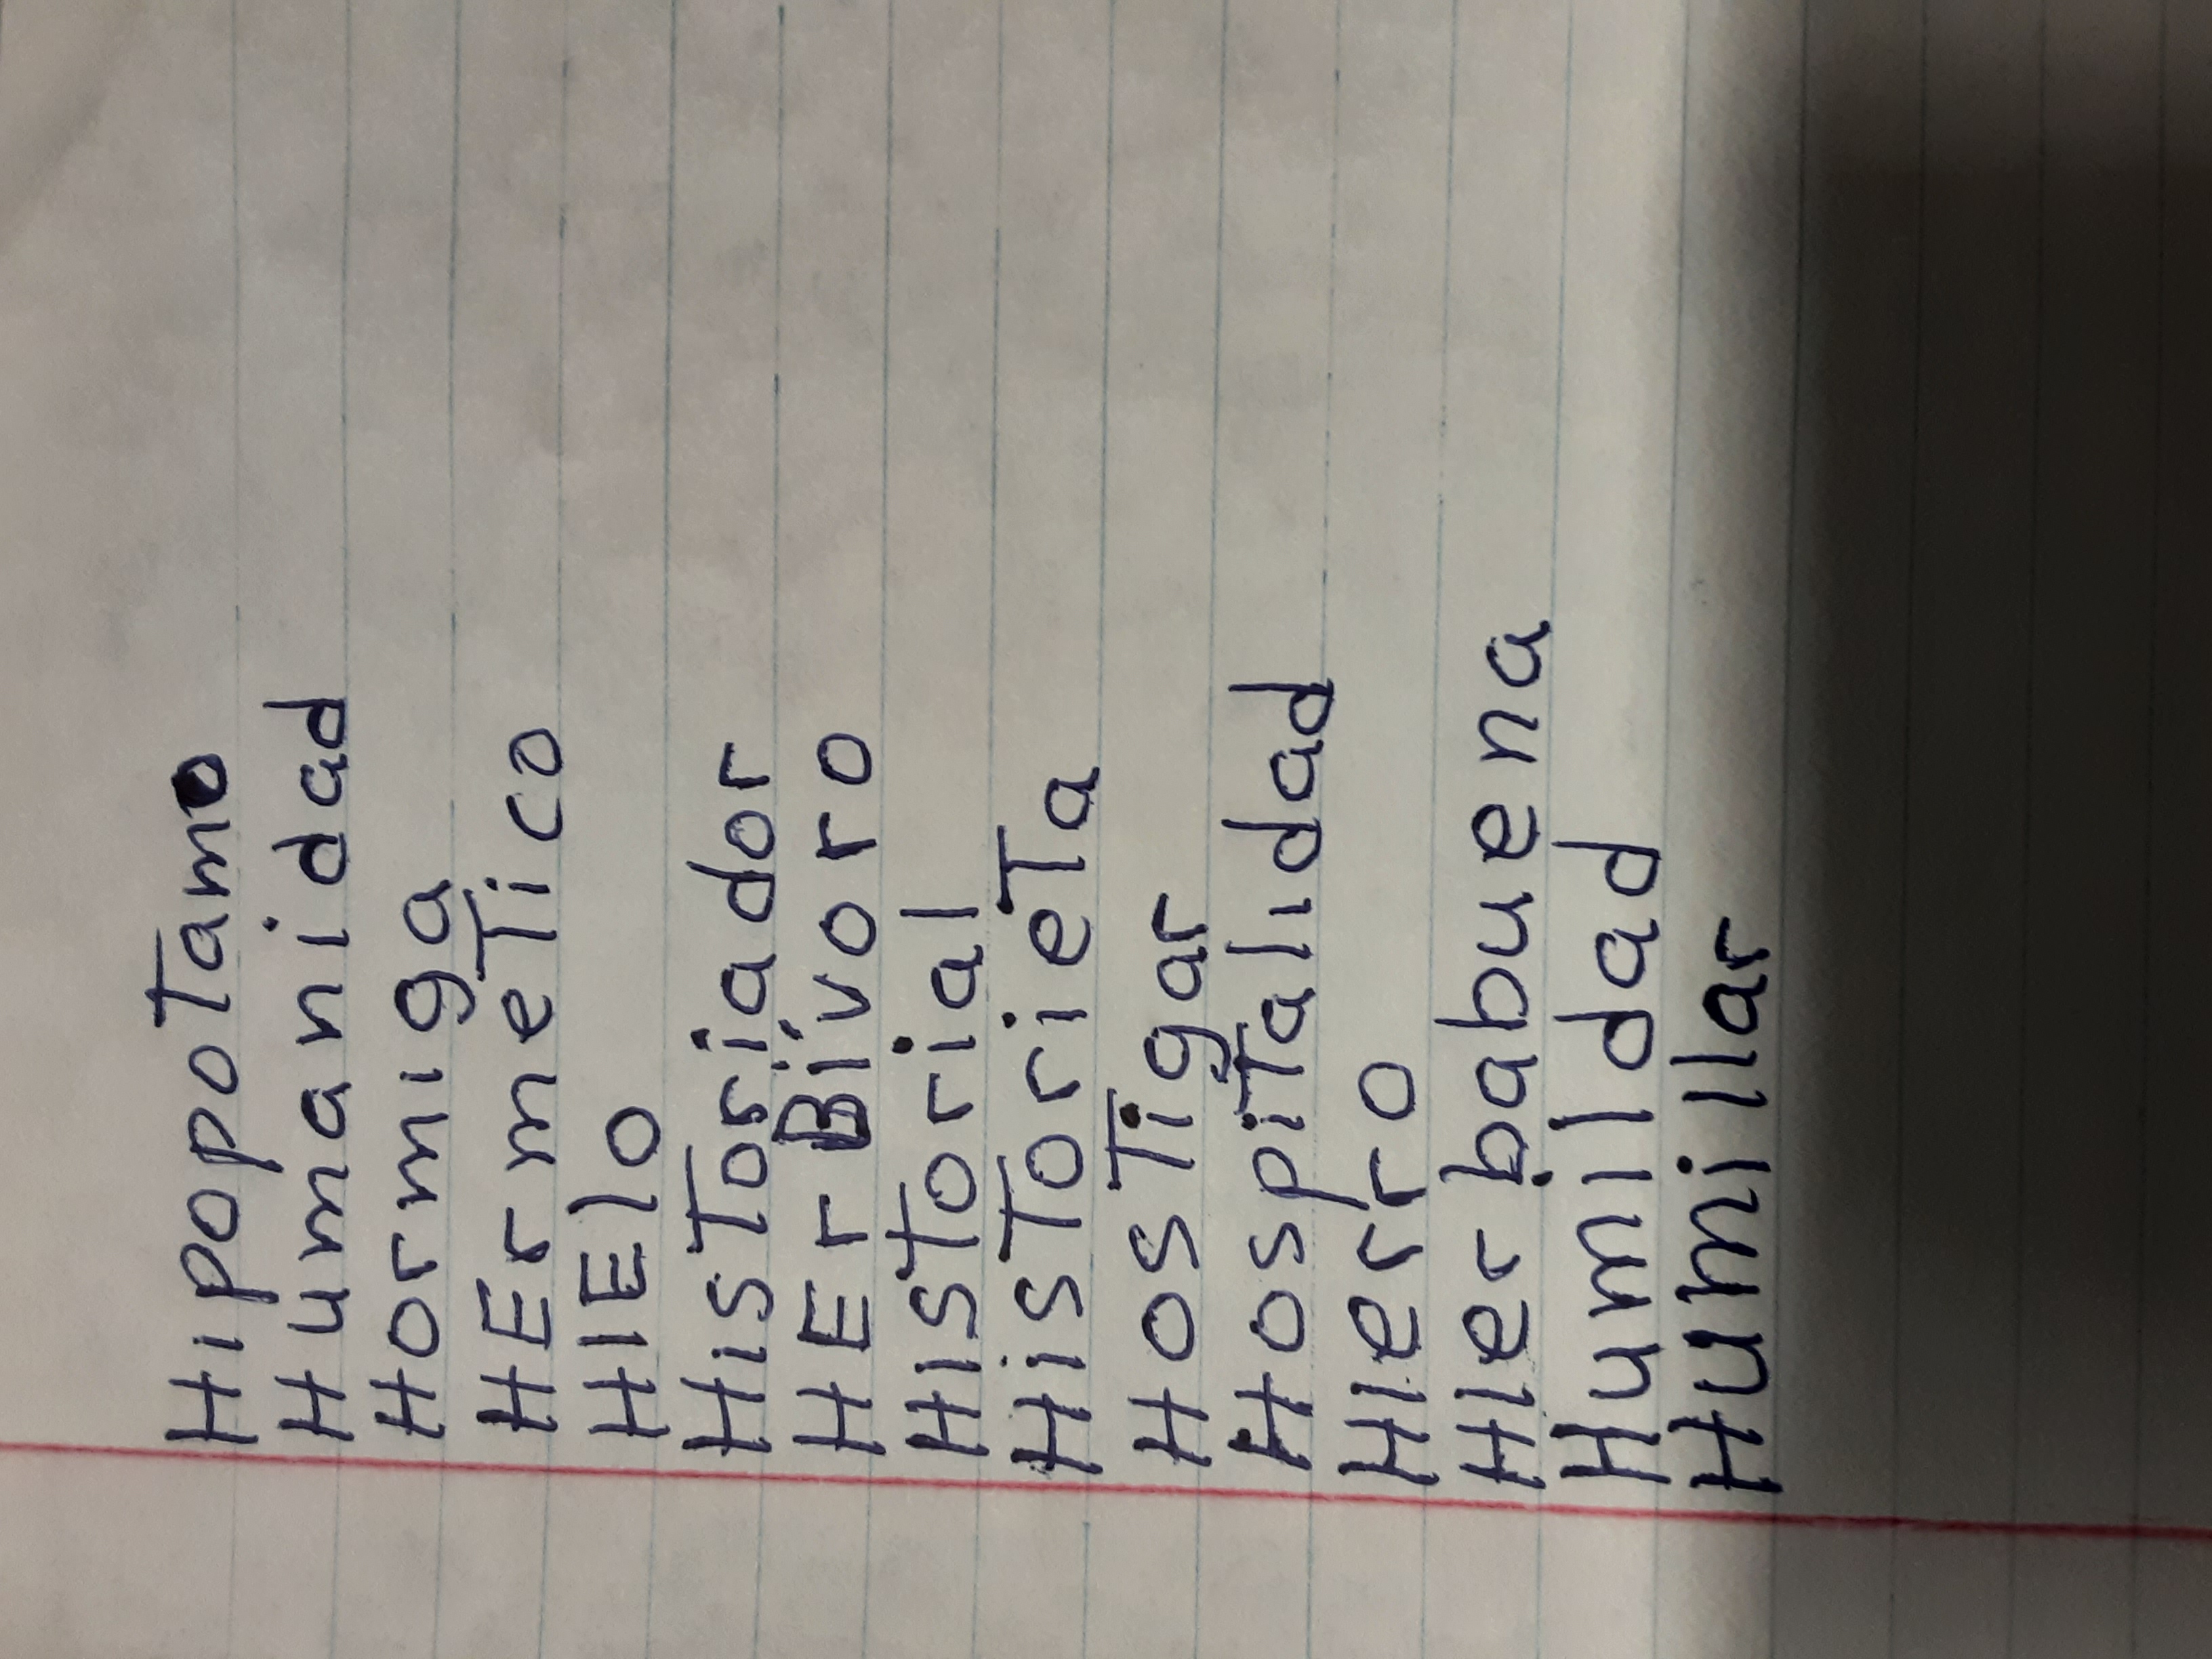 Hipopotamo
Humanidad
Hormiga
HErmeTico
HIElo
HisToriador
HErBivoro
HisTorial
HisTorieTa
HosTigar
HospiTalidad
Hierro
Hierbabuena
Humildad
Humillar